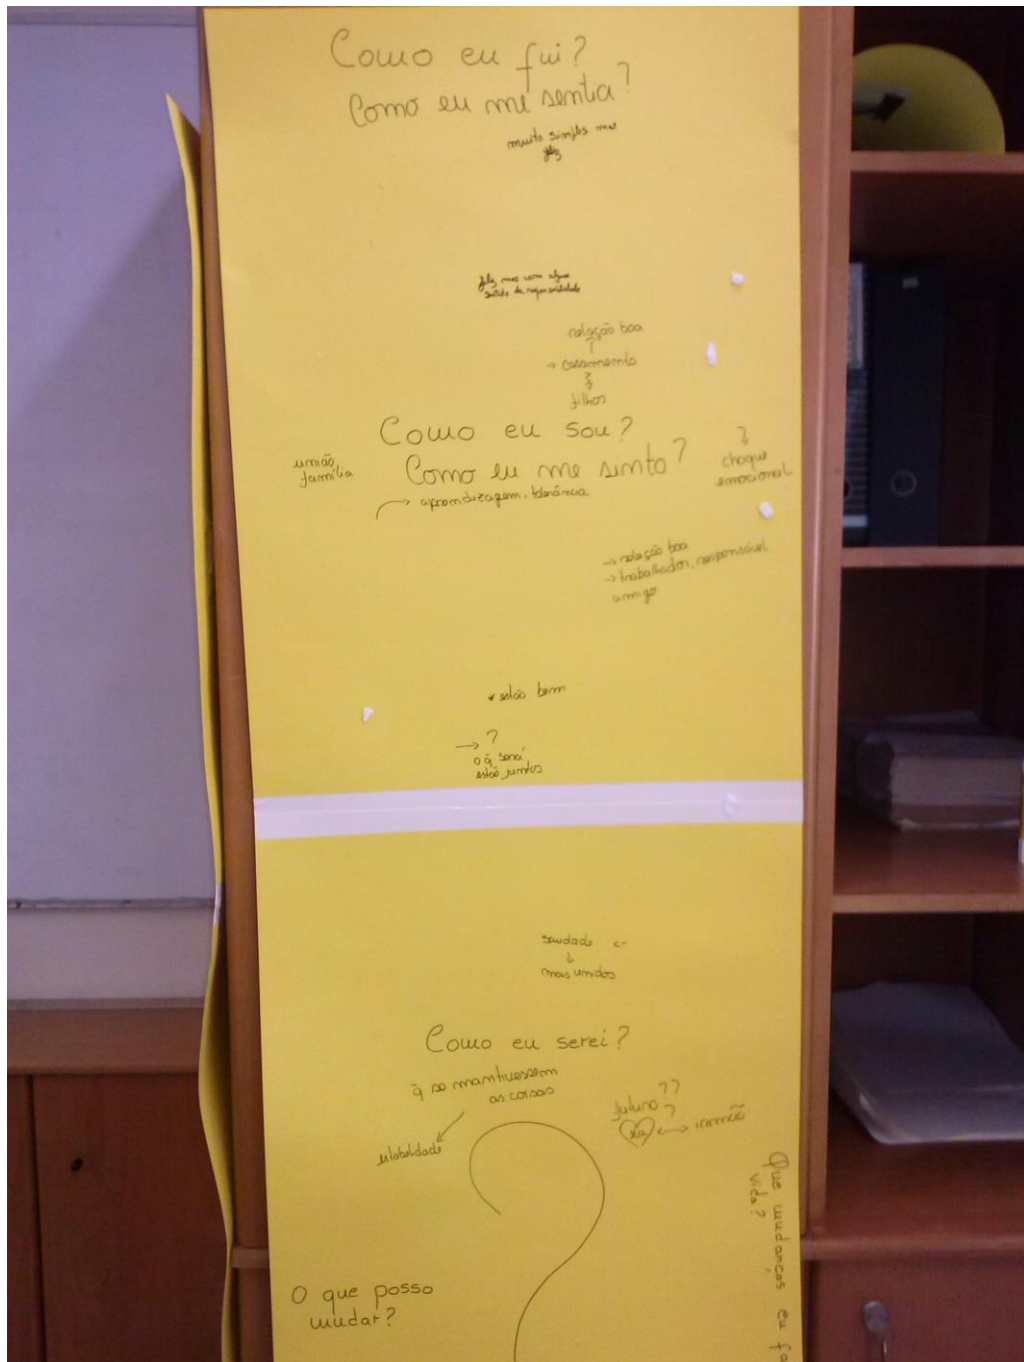 Como eu fui?
Como eu me sentia?
muito simples mas
feliz
feliz mas com algum
sentido de responsabilidade
relação boa
→ casamento
filhos
Como eu sou?
união,
família
Como eu me sinto?
?
choque
emocional
aprendizagem, tolerância
→ relação boa
→ trabalhador, responsável
amigo
estão bem
→ ?
o q̃ será
estão juntos
saudade
mais unidos
Como eu serei?
q̃ se mantivessem
as coisas
estabilidade
futuro??
?
irmão
Que mudanças eu
vida?
O que posso
mudar?